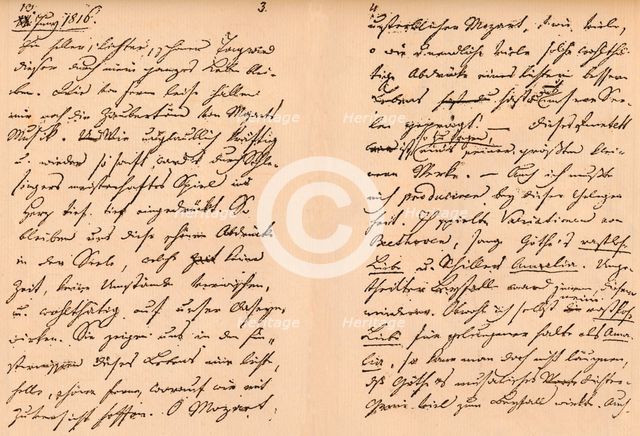 13.
Juny 1816.
3.
Ein heller, lichter, schöner Tag wird
dieser durch mein ganzes Leben blei-
ben. Wie von ferne leise hallen
mir noch die Zaubertöne von Mozarts
Musik. Wie unglaublich kräftig
u. wieder so sanft ward's durch Schle-
singers meisterhaftes Spiel ins
Herz tief tief eingedrückt. So
bleiben uns diese schönen Abdrücke
in der Seele, welche keine
Zeit, keine Umstände verwischen,
u. wohlthätig auf unser Daseyn
wirken. Sie zeigen uns in den Fin-
sternissen dieses Lebens eine licht,
helle, schöne Ferne, worauf wir mit
Zuversicht hoffen. O Mozart,
4.
unsterblicher Mozart, wie viele,
o wie unendlich viele solche wohlthä-
tige Abdrücke eines lichtern bessern
Lebens hast du in unsere See-
len geprägt. — Dieses Quintett
ist, so zu sagen, eines seiner größten klei-
nern Werke. — Auch ich mußte
mich produciren bey dieser Gelegen-
heit. Ich spielte Variationen von
Beethoven, sang Göthe's rastlose
Liebe u. Schillers Amalia. Unge-
theilter Beyfall ward jenem, diesem
minderer. Obwohl ich selbst meine rastlose
Liebe für gelungener halte als Ama-
lia, so kann man doch nicht läugnen,
daß Göthe's musikalisches Dichter-
Genie viel zum Beyfall wirkte. Auch
Heritage
©